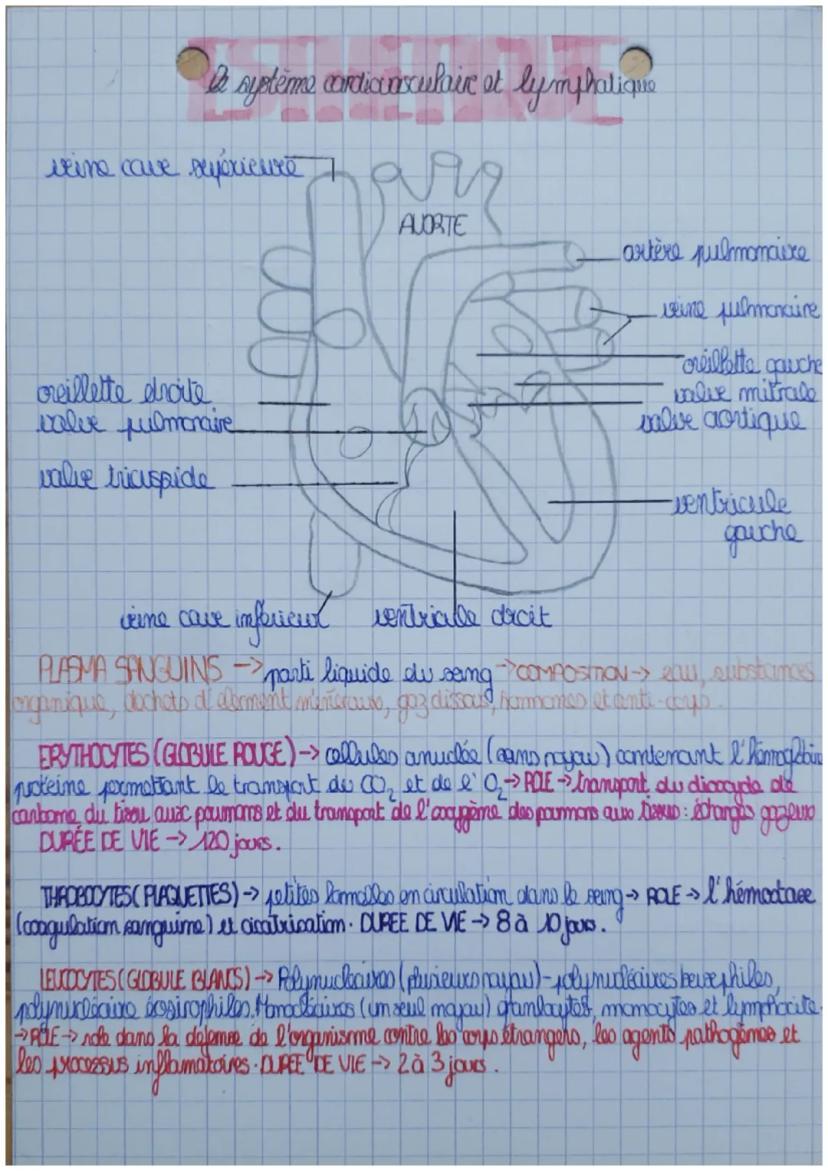 Le système cardiovasculaire et lymphatique
veine cave supérieure
AORTE
artère pulmonaire
veine pulmonaire
oreillette gauche
oreillette droite
valve mitrale
valve pulmonaire
valve aortique
valve tricuspide
ventricule
gauche
veine cave inférieur
ventricule droit
PLASMA SANGUINS -> parti liquide du sang -> COMPOSITION -> eau, substances
organique, déchets d'élement minéraux, gaz dissous, hormones et anti-corps.
ERYTHOCYTES (GLOBULE ROUGE) -> cellules anuclée (sans noyau) contenant l'hémoglobin
protéine permettant le transport du CO2 et de l'O2 -> ROLE -> transport du dioxyde de
carbone du tissu aux poumons et du transport de l'oxygène des poumons aux tissus : échanges gazeux
DURÉE DE VIE -> 120 jours.
(PLAQUETTES) -> petites lamelles en circulation dans le sang -> ROLE -> l'hémostase
(coagulation sanguine) et cicatrisation. DUREE DE VIE -> 8 à 10 jours.
LEUCOYTES (GLOBULE BLANCS) -> Polynucléaires (plusieurs noyau) - polynucléaires
polynucléaire (un seul noyau) monocytes et lymphocite.
-> ROLE -> role dans la défense de l'organisme contre les corps étrangers, les agents pathogènes et
les processus inflamatoires. DUREE DE VIE -> 2 à 3 jours.